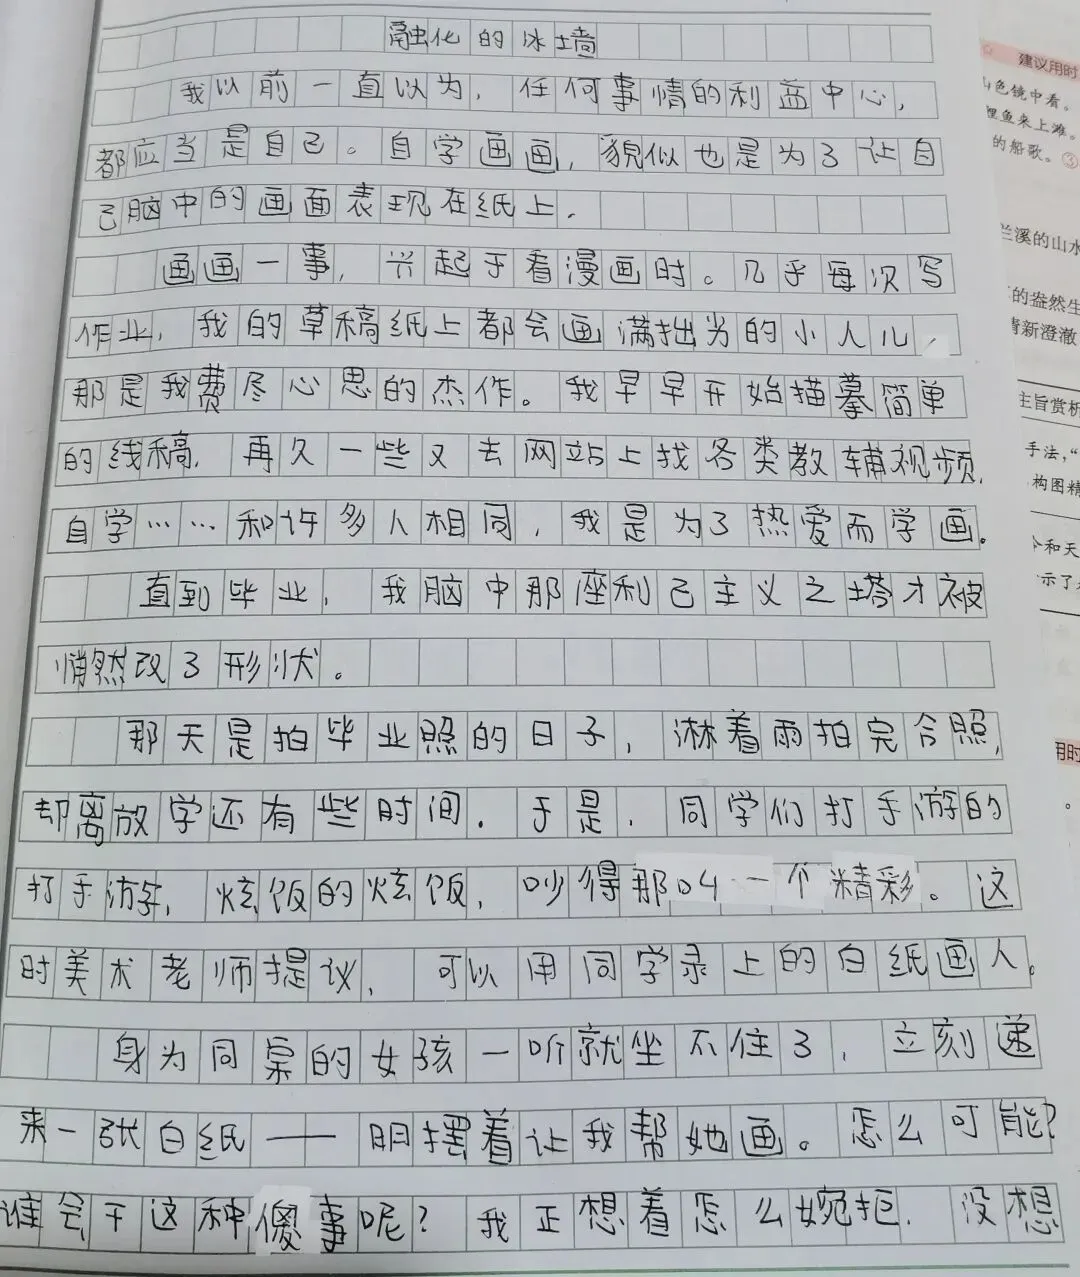 融化的冰墙
我以前一直以为，任何事情的利益中心，
都应当是自己。自学画画，貌似也是为了让自
己脑中的画面表现在纸上．
画画一事，兴起于看漫画时。几乎每次写
作业，我的草稿纸上都会画满拙劣的小人儿，
那是我费尽心思的杰作。我早早开始描摹简单
的线稿．再久一些又去网站上找各类教辅视频．
自学……和许多人相同，我是为了热爱而学画。
直到毕业，我脑中那座利己主义之塔才被
悄然改了形状。
那天是拍毕业照的日子，淋着雨拍完合照，
却离放学还有些时间．于是．同学们打手游的
打手游，炫饭的炫饭，吵得那叫一个精彩。这
时美术老师提议，可以用同学录上的白纸画人。
身为同桌的女孩一听就坐不住了，立刻递
来一张白纸——明摆着让我帮她画。怎么可能？
谁会干这种傻事呢？我正想着怎么婉拒．没想
建议用时
山色镜中看。
鲤鱼来上滩。
的船歌。③
兰溪的山水
的盎然生
清新澄澈
主旨赏析
手法，“
构图精
今和天
示了
用时